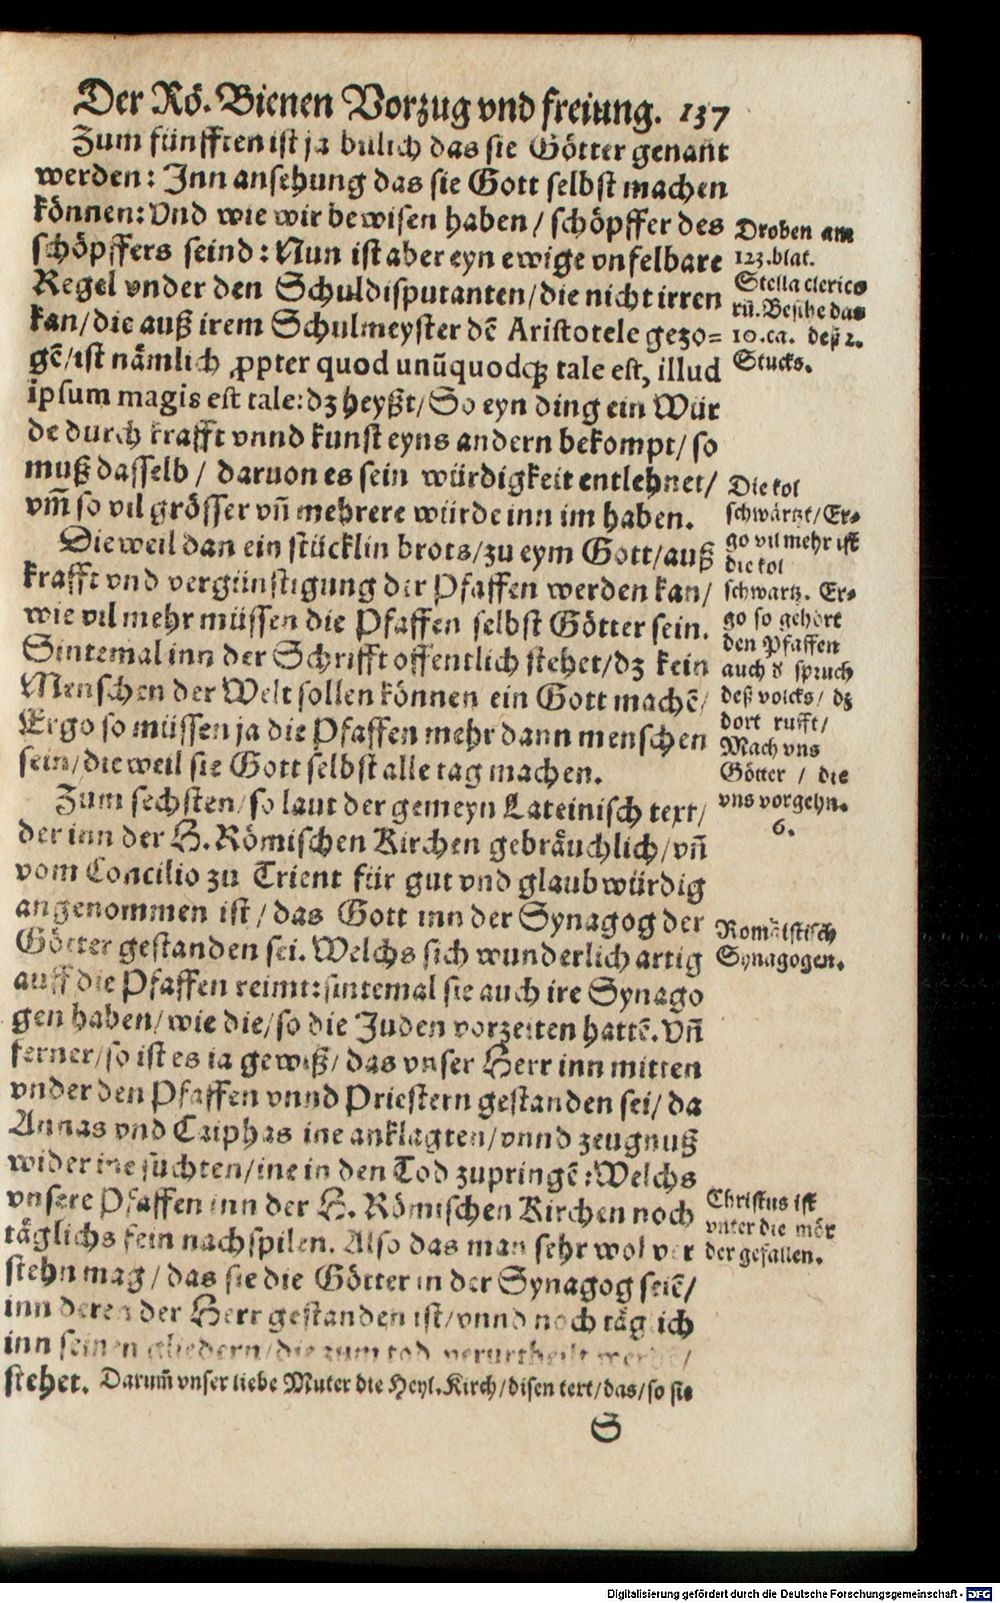 Der Rö. Bienen Vorzug vnd freiung. 137
Zum fünfften ist ja billich das sie Götter genañt
werden: Inn ansehung das sie Gott selbst machen
können: Vnd wie wir bewisen haben / schöpffer des
schöpffers seind: Nun ist aber eyn ewige vnfelbare
Regel vnder den Schuldisputanten / die nicht irren
kan / die auß irem Schulmeyster dẽ Aristotele gezo=
gẽ / ist nämlich ꝓpter quod unũquodqꝫ tale est, illud
ipsum magis est tale: dz heyßt / So eyn ding ein Wür
de durch krafft vnnd kunst eyns andern bekompt / so
muß dasselb / daruon es sein würdigkeit entlehnet /
vm̃ so vil grösser vñ mehrere würde inn im haben.
Dieweil dan ein stücklin brots / zu eym Gott / auß
krafft vnd vergünstigung der Pfaffen werden kan /
wie vil mehr müssen die Pfaffen selbst Götter sein.
Sintemal inn der Schrifft offentlich stehet / dz kein
Menschen der Welt sollen können ein Gott machẽ /
Ergo so müssen ja die Pfaffen mehr dann menschen
sein / die weil sie Gott selbst alle tag machen.
Zum sechsten / so laut der gemeyn Lateinisch text /
der inn der H. Römischen Kirchen gebräuchlich / vñ
vom Concilio zu Trient für gut vnd glaubwürdig
angenommen ist / das Gott inn der Synagog der
Götter gestanden sei. Welchs sich wunderlich artig
auff die Pfaffen reimt: sintemal sie auch ire Synago
gen haben / wie die / so die Juden vorzeiten hattẽ. Vñ
ferner / so ist es ia gewiß / das vnser Herr inn mitten
vnder den Pfaffen vnnd Priestern gestanden sei / da
Annas vnd Caiphas ine anklagten / vnnd zeugnuß
wider ine suchten / ine in den Tod zupringẽ: Welchs
vnsere Pfaffen inn der H. Römischen Kirchen noch
täglichs fein nachspilen. Also das man sehr wol ver
stehn mag / das sie die Götter in der Synagog seiẽ /
inn deren der Herr gestanden ist / vnnd noch täglich
inn seinen gliedern / die zum tod verurtheilt werdẽ /
stehet. Darum̃ vnser liebe Muter die Heyl. Kirch / disen text / das / so sie
S
Droben am
123. blat.
Stella clerico
rũ. Besihe das
10. ca. deß 2.
Stucks.
Die kol
schwärtzt / Er=
go vil mehr ist
die kol
schwartz. Er=
go so gehört
den Pfaffen
auch d̕ spruch
deß volcks / dz
dort rufft /
Mach vns
Götter / die
vns vorgehn.
6.
Romäistisch
Synagogen.
Christus ist
vnter die mör
der gefallen.
Digitalisierung gefördert durch die Deutsche Forschungsgemeinschaft - DFG